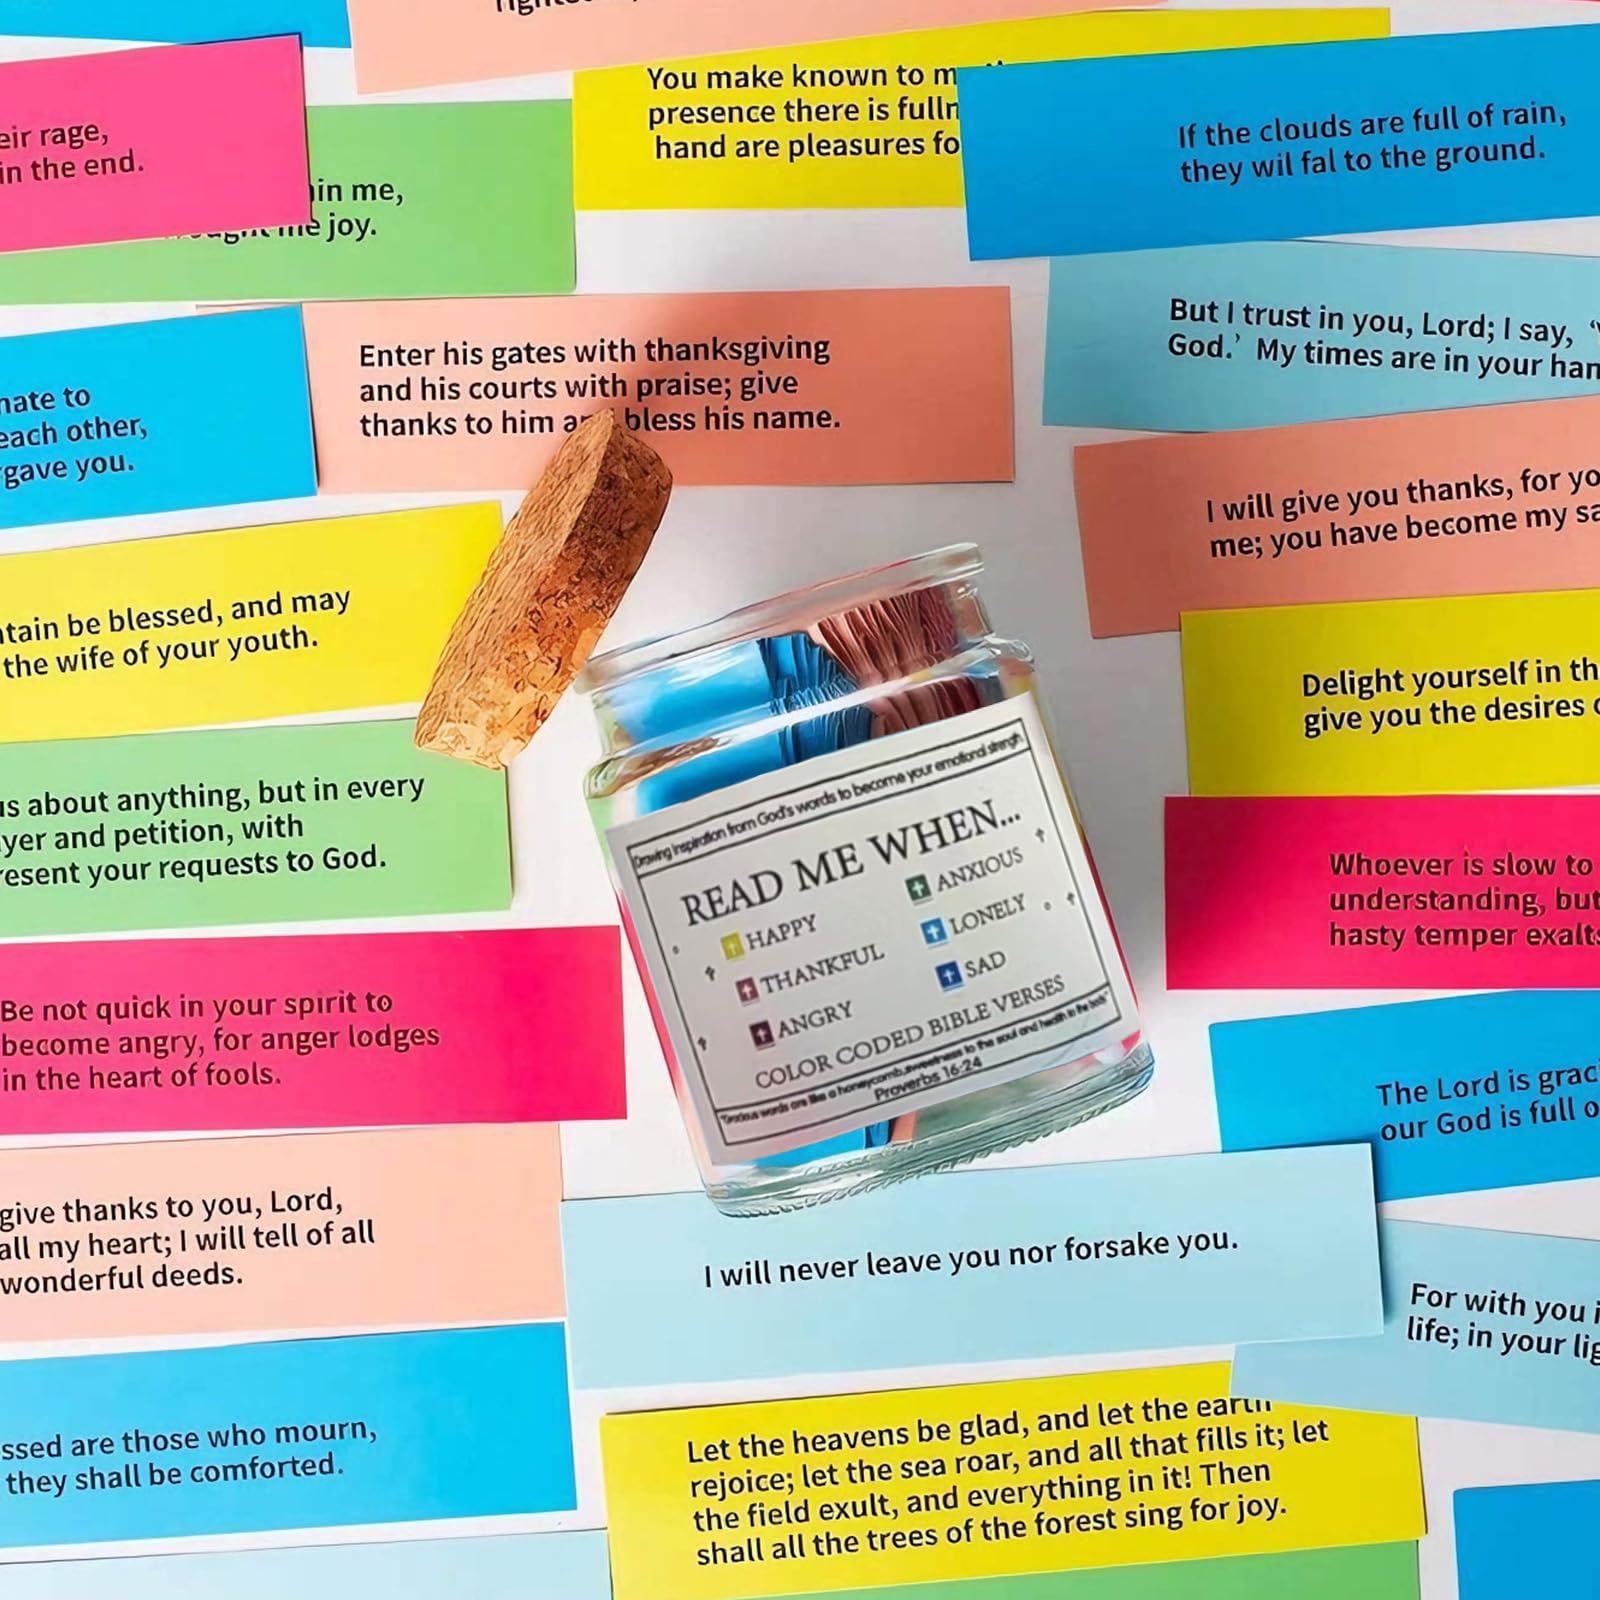 You make known to
presence there is
hand are pleasures
If the clouds are full of rain,
they wil fal to the ground.
rage,
in the end.
me,
joy.
Enter his gates with thanksgiving
and his courts with praise; give
thanks to him bless his name.
But I trust in you, Lord; I say,
God.’ My times are in your
to
each other,
gave you.
I will give you thanks, for
me; you have become my
be blessed, and may
the wife of your youth.
Delight yourself in
give you the desires
about anything, but in every
and petition, with
your requests to God.
Whoever is slow to
understanding, but
hasty temper
Drawing inspiration from God's words to become your emotional strength
READ ME WHEN...
HAPPY
THANKFUL
ANGRY
ANXIOUS
LONELY
SAD
COLOR CODED BIBLE VERSES
"Gracious words are like a honeycomb,sweetness to the soul and health to the body"
Proverbs 16:24
Be not quick in your spirit to
become angry, for anger lodges
in the heart of fools.
The Lord is
our God is full
give thanks to you, Lord,
all my heart; I will tell of all
wonderful deeds.
I will never leave you nor forsake you.
For with you
life; in your
are those who mourn,
they shall be comforted.
Let the heavens be glad, and let the earth
rejoice; let the sea roar, and all that fills it; let
the field exult, and everything in it! Then
shall all the trees of the forest sing for joy.